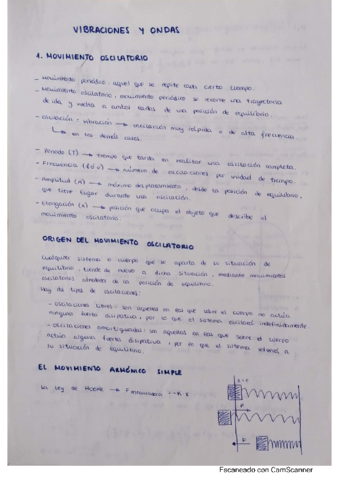 VIBRACIONES Y ONDAS
1. MOVIMIENTO OSCILATORIO
- Movimiento periódico, aquel que se repite cada cierto tiempo.
- Movimiento oscilatorio, movimiento periódico se recorre una trayectoria
de ida y vuelta a ambos lados de una posición de equilibrio.
- Oscilación - vibración → oscilación muy rápida o de alta frecuencia
↳ en los demás casos.
- Periodo (T) → tiempo que tarda en realizar una oscilación completa.
- Frecuencia → número de oscilaciones por unidad de tiempo.
- Amplitud (A) → máximo desplazamiento, desde la posición de equilibrio,
que tiene lugar durante una oscilación.
- Elongación (x) → posición que ocupa el objeto que describe el
movimiento oscilatorio.
ORIGEN DEL MOVIMIENTO OSCILATORIO
Cualquier sistema o cuerpo que se aparta de su situación de
equilibrio, tiende de nuevo a dicha situación, mediante movimientos
oscilatorios alrededor de la posición de equilibrio.
Hay dos tipos de oscilaciones:
- oscilaciones libres: son aquellas en las que sobre el cuerpo no actúa
ninguna fuerza disipativa, por lo que el sistema oscilará indefinidamente
- oscilaciones amortiguadas: son aquellas en las que sobre el cuerpo
actúa alguna fuerza disipativa, por lo que el sistema volverá a
su situación de equilibrio.
EL MOVIMIENTO ARMÓNICO SIMPLE
La Ley de Hooke →
Escaneado con CamScanner